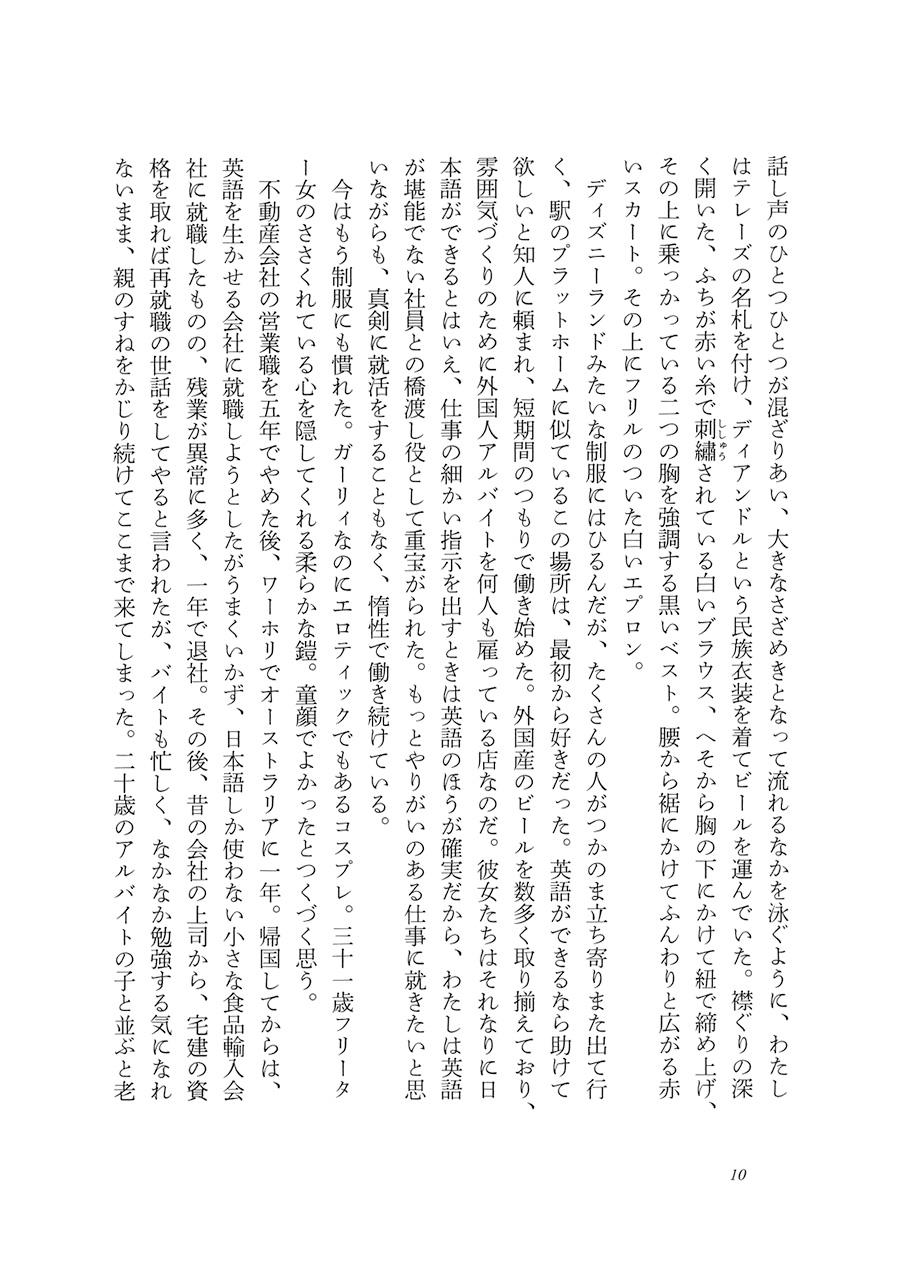 話し声のひとつひとつが混ざりあい、大きなさざめきとなって流れるなかを泳ぐように、わたし
はテレーズの名札を付け、ディアンドルという民族衣装を着てビールを運んでいた。襟ぐりの深
く開いた、ふちが赤い糸で刺繡されている白いブラウス、へそから胸の下にかけて紐で締め上げ、
ししゅう
その上に乗っかっている二つの胸を強調する黒いベスト。腰から裾にかけてふんわりと広がる赤
いスカート。その上にフリルのついた白いエプロン。
ディズニーランドみたいな制服にはひるんだが、たくさんの人がつかのま立ち寄りまた出て行
く、駅のプラットホームに似ているこの場所は、最初から好きだった。英語ができるなら助けて
欲しいと知人に頼まれ、短期間のつもりで働き始めた。外国産のビールを数多く取り揃えており、
雰囲気づくりのために外国人アルバイトを何人も雇っている店なのだ。彼女たちはそれなりに日
本語ができるとはいえ、仕事の細かい指示を出すときは英語のほうが確実だから、わたしは英語
が堪能でない社員との橋渡し役として重宝がられた。もっとやりがいのある仕事に就きたいと思
いながらも、真剣に就活をすることもなく、惰性で働き続けている。
今はもう制服にも慣れた。ガーリィなのにエロティックでもあるコスプレ。三十一歳フリータ
ー女のささくれている心を隠してくれる柔らかな鎧。童顔でよかったとつくづく思う。
不動産会社の営業職を五年でやめた後、ワーホリでオーストラリアに一年。帰国してからは、
英語を生かせる会社に就職しようとしたがうまくいかず、日本語しか使わない小さな食品輸入会
社に就職したものの、残業が異常に多く、一年で退社。その後、昔の会社の上司から、宅建の資
格を取れば再就職の世話をしてやると言われたが、バイトも忙しく、なかなか勉強する気になれ
ないまま、親のすねをかじり続けてここまで来てしまった。二十歳のアルバイトの子と並ぶと老
10